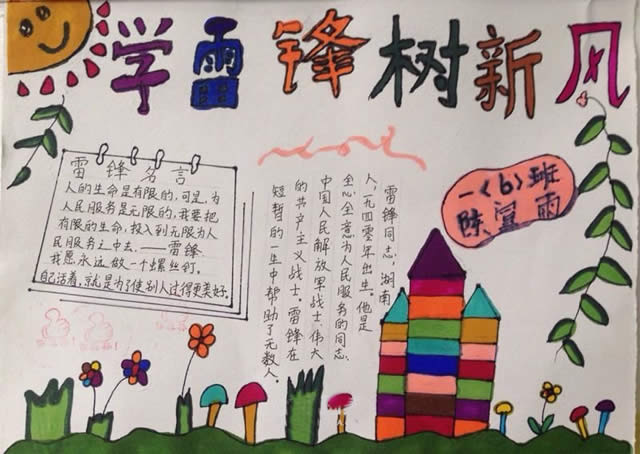 学雷锋树新风
雷锋名言
人的生命是有限的,可是,为
人民服务是无限的,我要把
有限的生命,投入到无服为人
民服务之中去。——雷锋
我愿永远做一个螺丝钉。
自己活着,就是为了使别人过得更美好。
雷锋同志,湖南
人,一九四零年出生。他是
全心全意为人民服务的同志,
中国人民解放军战士伟大
的共产主义战士。雷锋在
短暂的一生中帮助了无数人。
一(6)班
宣雨